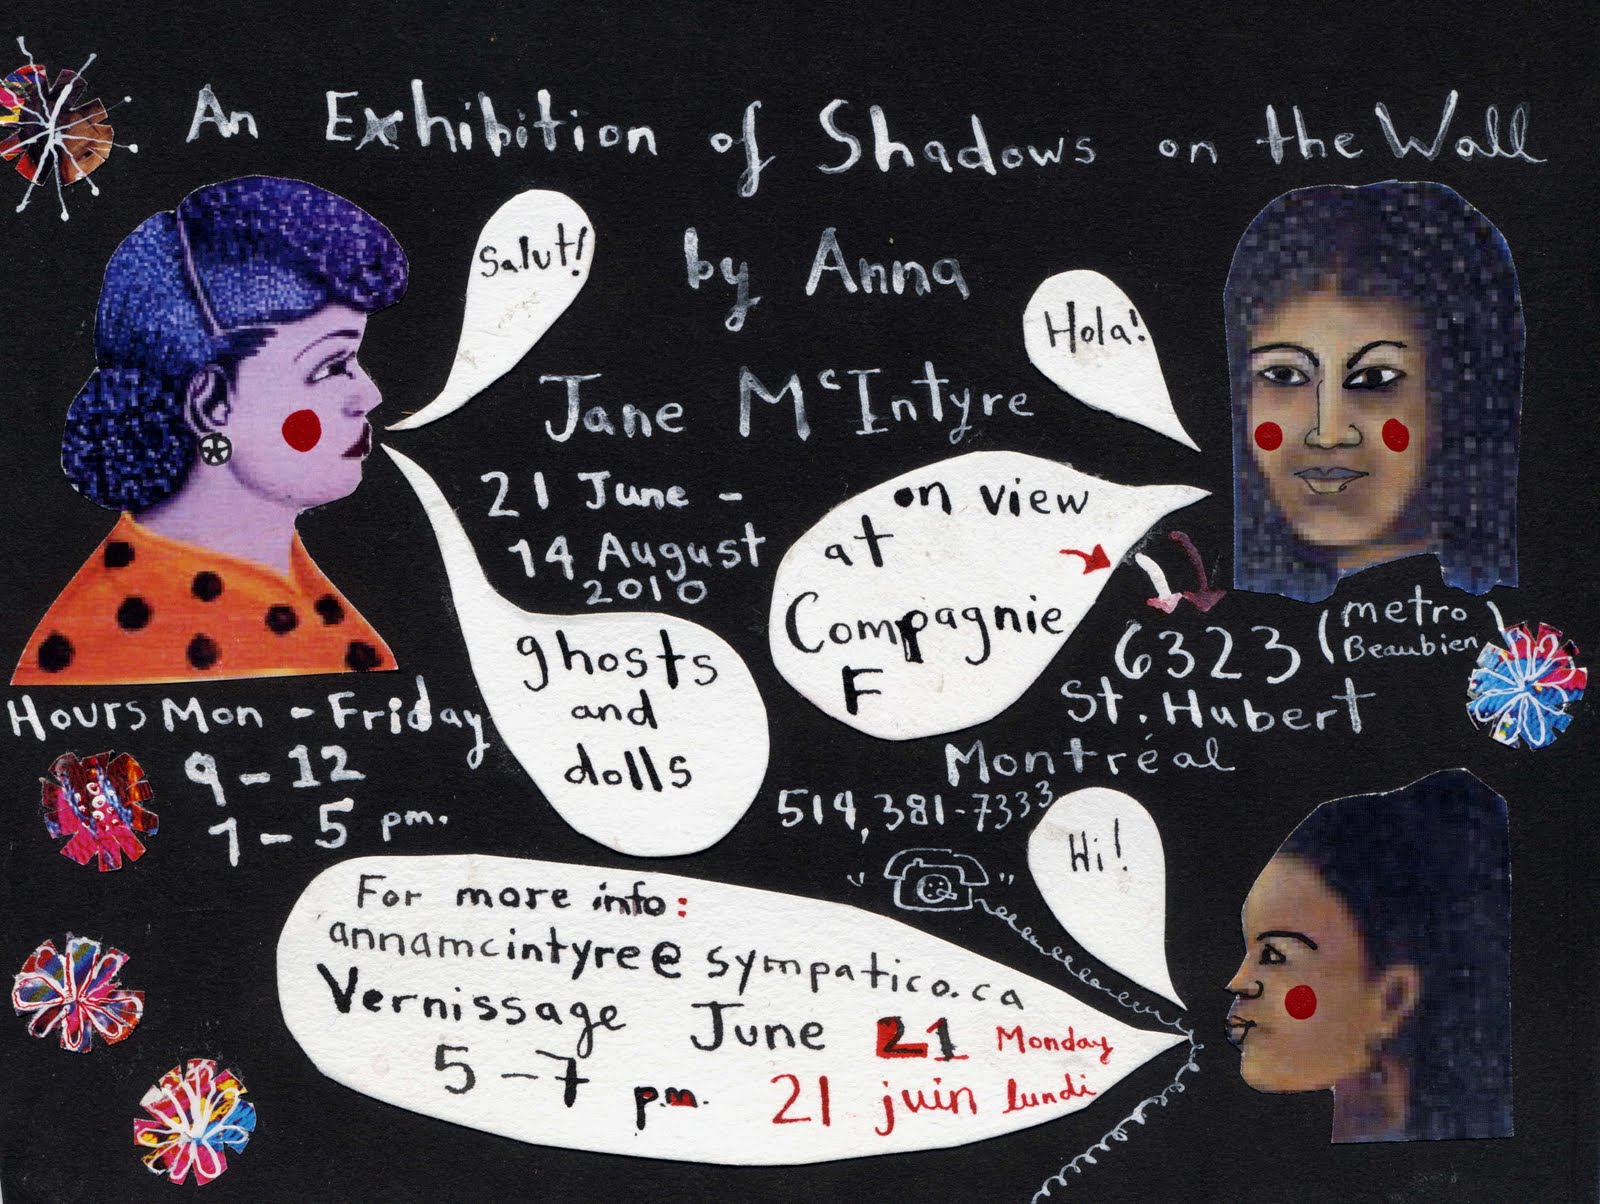 An Exhibition of Shadows on the Wall
by Anna
Jane McIntyre
21 June -
14 August
2010
Salut!
Hola!
ghosts
and
dolls
on view
at
Compagnie
F
6323 (metro
Beaubien)
St. Hubert
Montréal
514, 381-7333
Hours Mon - Friday
9 - 12
1 - 5 pm.
Hi!
For more info:
annamcintyre@sympatico.ca
Vernissage June 21 Monday
5 - 7 p.m. 21 juin lundi